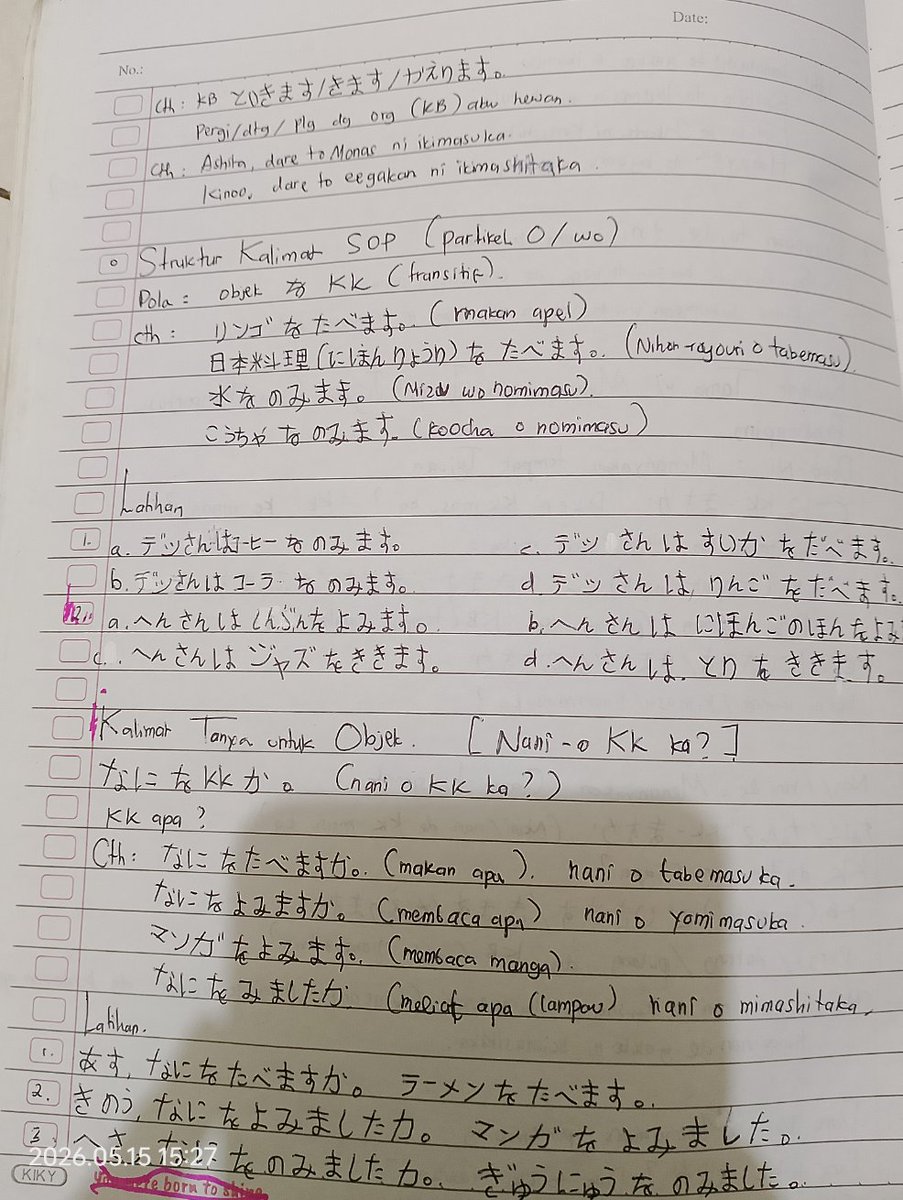 Date:
No.:
Cth : KB といきます/きます/かえります。
Pergi/dtg/plg dg org (KB) atau hewan.
Cth : Ashita, dare to Monas ni ikimasuka.
Kinoo, dare to eegakan ni ikimashitaka.
Struktur Kalimat SOP (partikel O/wo)
Pola = objek を KK (transitif).
cth : リンゴをたべます。(makan apel)
日本料理(にほんりょうり)をたべます。(Nihon ryouri o tabemasu)
水をのみます。(Mizu wo nomimasu).
こうちゃをのみます。(koocha o nomimasu)
Latihan
1. a. デツさんはコーヒーをのみます。 c. デツさんはすいかをだべます。
b. デツさんはコーラーをのみます。 d. デツさんは, りんごをだべます。
2. a. へんさんはしんぶんをよみます。 b. へんさんは にほんごのほんをよみ
c. へんさんはジャズをききます。 d. へんさんは, とりをききます。
Kalimat Tanya untuk Objek. [Nani-o KK ka?]
なにをKKか。(nani o KK ka?)
KK apa?
Cth: なにをたべますか。(makan apa). nani o tabemasuka.
なにをよみますか。(membaca apa) nani o yomimasuka.
マンガをよみます。(membaca manga).
なにをみましたか (melihat apa (lampau) nani o mimashitaka.
Latihan.
1. あす, なにをたべますか。 ラーメンをたべます。
2. きのう, なにをよみました力。 マンガをよみました。
3. へさ, なにをのみました力。 ぎゅうにゅうをのみました。
2026.05.15 15:27
KIKY
born to shine